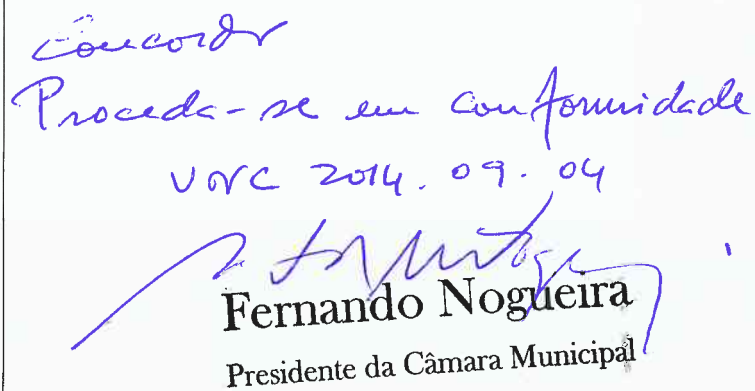 Concordo
Proceda-se em conformidade
VNC 2014.09.04
Fernando Nogueira
Presidente da Câmara Municipal